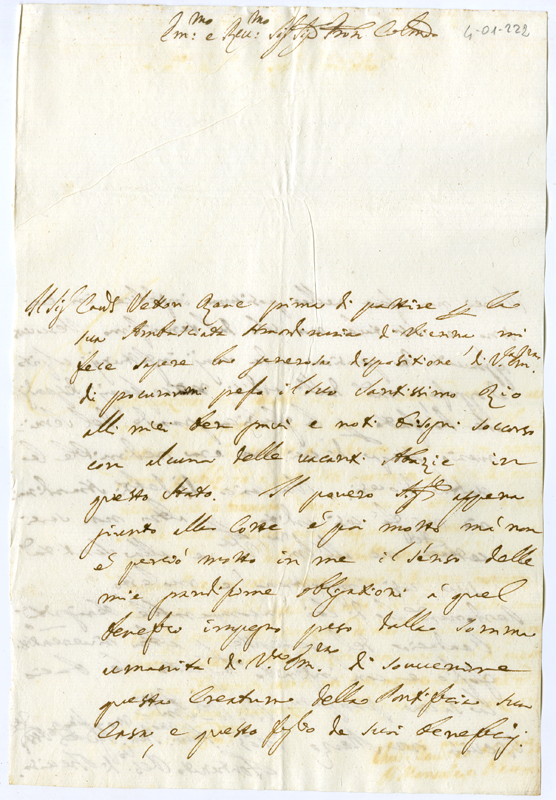 Em:mo e Rev:mo Sig Sig Pron Colmo
4-01-222
Il Sig Cavr Vettor Zane prima di partire per la
sua Ambasciata straordinaria di Vienna, mi
fece sapere la generosa dispositione di V.
di procurarmi presso il suo Santissimo Zio
alli miei ben gravi e noti bisogni soccorso
con alcuna delle vacanti Abazie in
questo Stato. Il povero Sigre appena
giunto alla Corte è poi morto mà non
è perciò morto in me il senso delle
mie grandissime obligationi à quel
benefico impegno preso dalla somma
umanità di V. Em. di sovvenire
questa Creatura della Pontificia sua
Casa, e questo figlio de suoi beneficij.